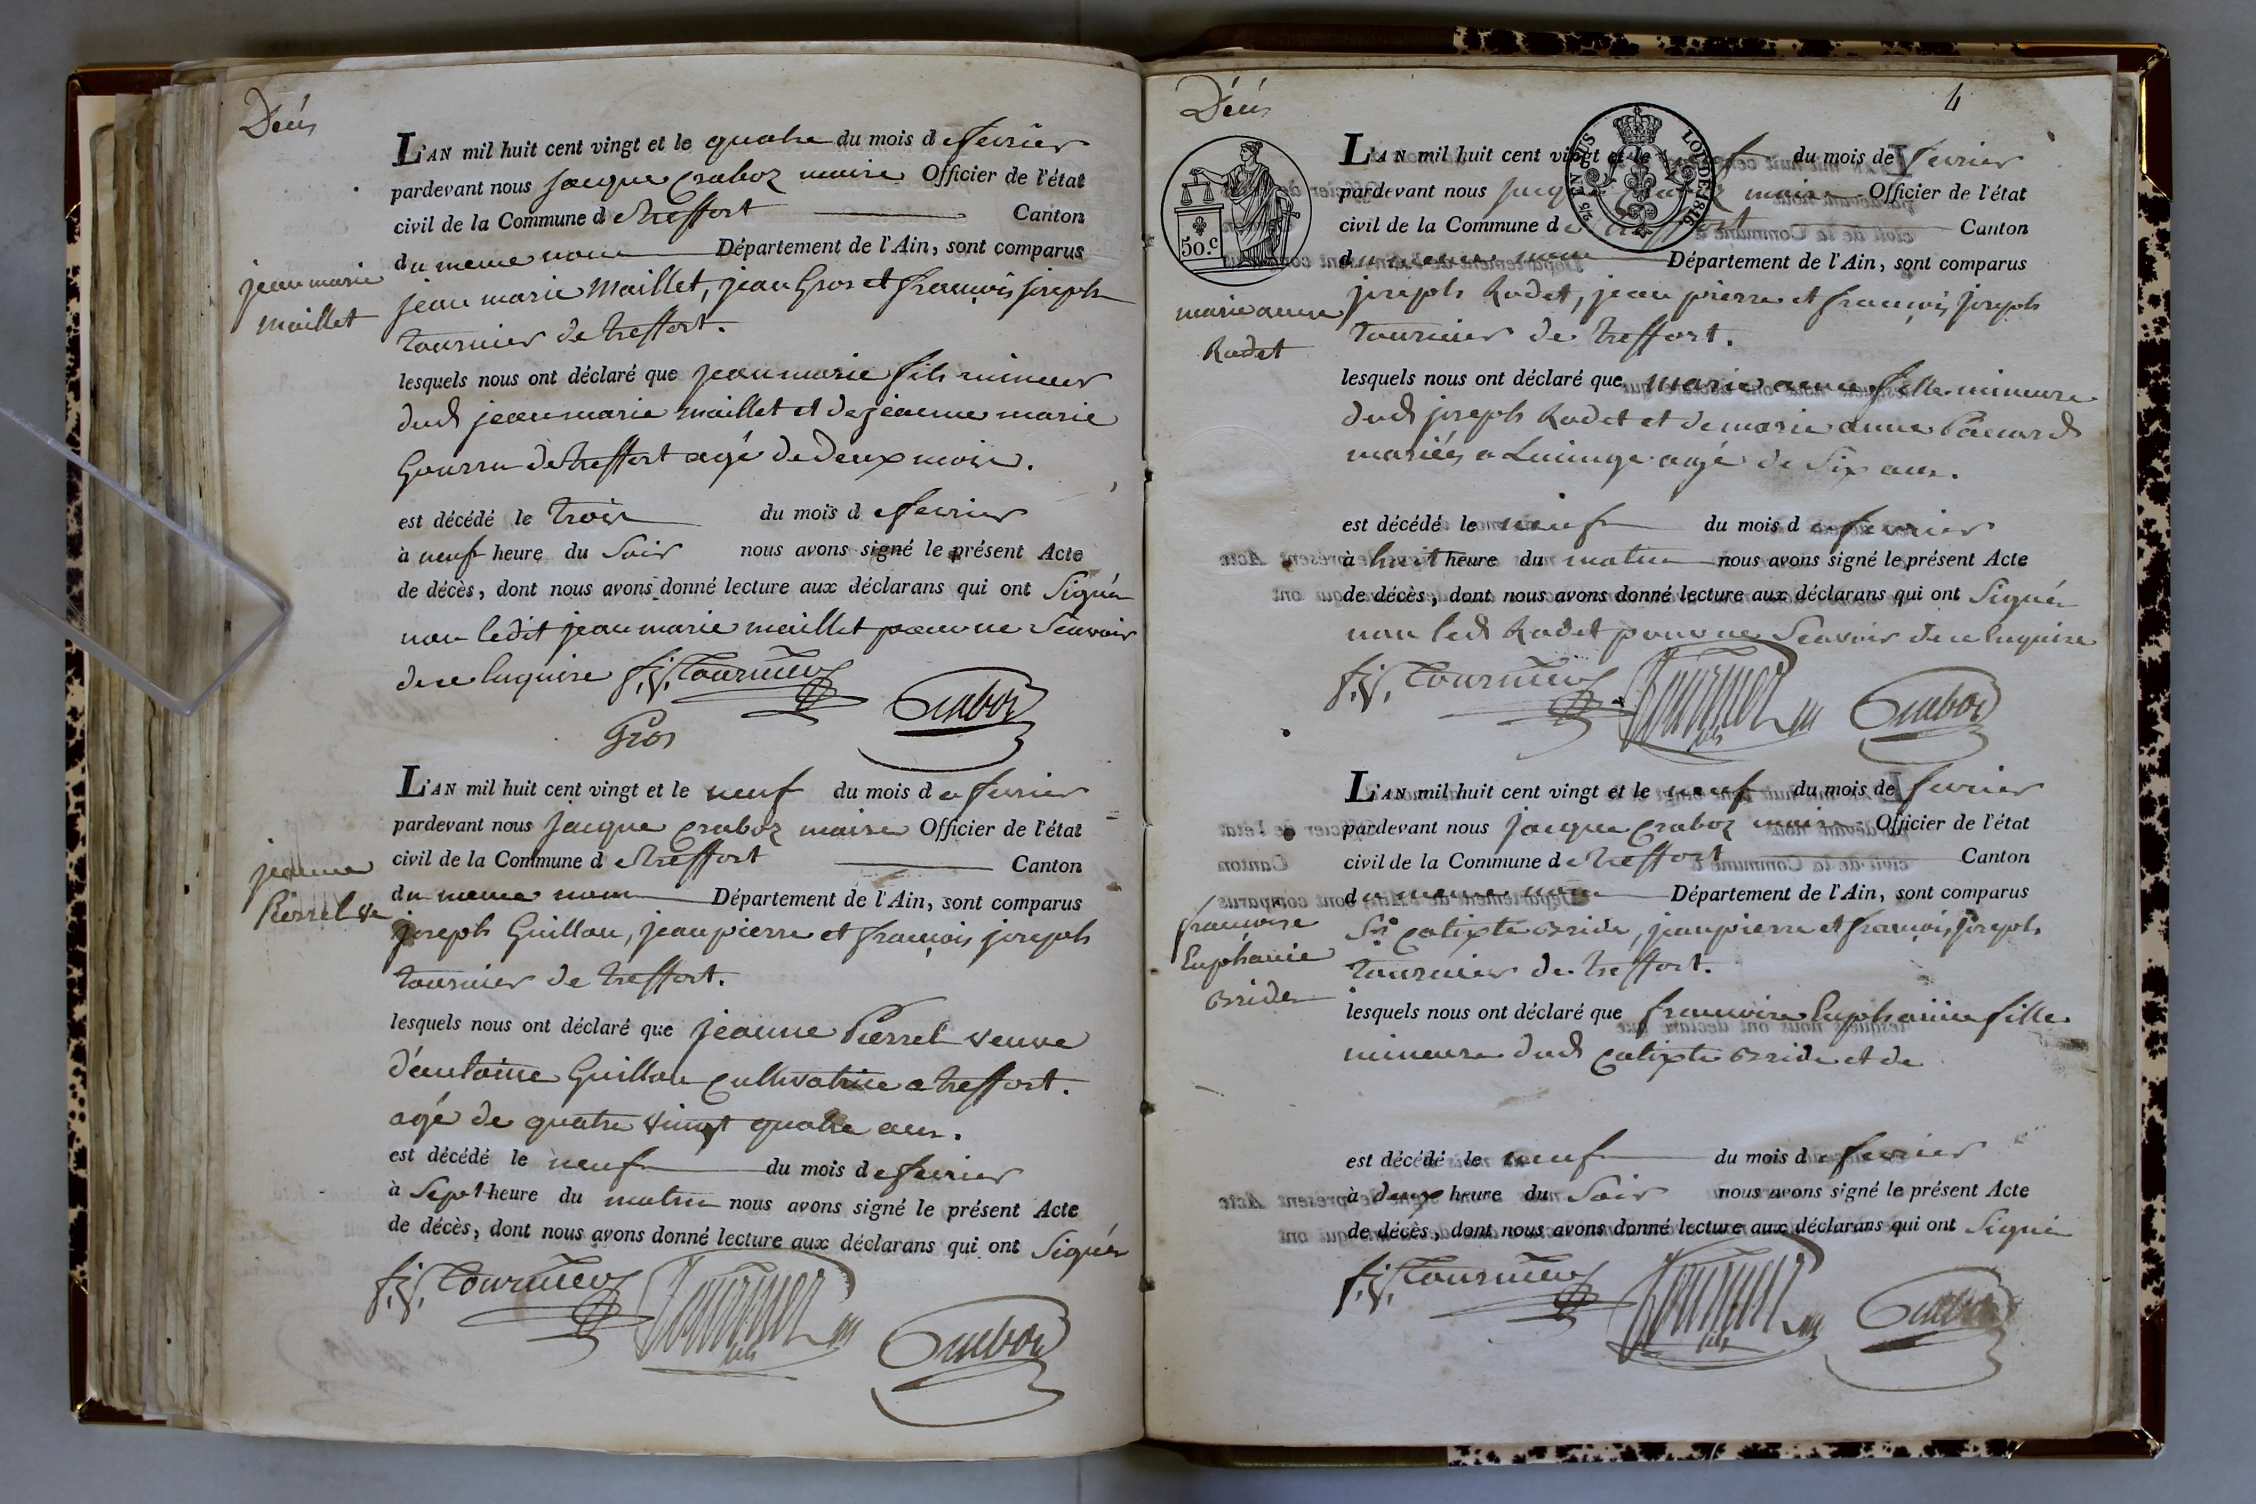 Décès
L'AN mil huit cent vingt et le quatre du mois de fevrier
pardevant nous jacque Craboz maire Officier de l'état
civil de la Commune de treffort Canton
du meme nom Département de l'Ain, sont comparus
jean marie
maillet
jean marie Maillet, jean Gros et françois joseph
tournier de treffort.
lesquels nous ont déclaré que jean marie fils mineur
dud jean marie maillet et de jeanne marie
de treffort agé de deux mois.
est décédé le trois du mois de fevrier
à neuf heure du soir nous avons signé le présent Acte
de décès, dont nous avons donné lecture aux déclarans qui ont signés
non ledit jean marie maillet pour ne scavoir
de ce enquise f. j. tournier
Craboz
Gros
L'AN mil huit cent vingt et le neuf du mois de fevrier
pardevant nous jacque Craboz maire Officier de l'état
civil de la Commune de treffort Canton
jeanne
Pierrel ve
du meme nom Département de l'Ain, sont comparus
joseph Guillon, jean pierre et françois joseph
tournier de treffort.
lesquels nous ont déclaré que jeanne Pierrel veuve
d'antoine Guillon cultivatrice a treffort.
agé de quatre vingt quatre ans.
est décédé le neuf du mois de fevrier
à sept heure du matin nous avons signé le présent Acte
de décès, dont nous avons donné lecture aux déclarans qui ont signés
f. j. tournier Tournier fils Craboz
Décès
4
L'AN mil huit cent vingt et le neuf du mois de fevrier
pardevant nous jacque Craboz maire Officier de l'état
civil de la Commune de treffort Canton
du meme nom Département de l'Ain, sont comparus
50.c
25 EN SUS
LOI DE 1816
marie anne
Rodet
joseph Rodet, jean pierre et françois joseph
tournier de treffort.
lesquels nous ont déclaré que marie anne fille mineure
dud joseph Rodet et de marie anne
mariés a agé de six ans.
est décédé le neuf du mois de fevrier
à huit heure du matin nous avons signé le présent Acte
de décès, dont nous avons donné lecture aux déclarans qui ont signés
non led Rodet pour ne scavoir de ce enquise
f. j. tournier Tournier fils Craboz
L'AN mil huit cent vingt et le neuf du mois de fevrier
pardevant nous jacque Craboz maire Officier de l'état
civil de la Commune de treffort Canton
du meme nom Département de l'Ain, sont comparus
francoise
Euphanie
Bride
Sr Calixte Bride, jean pierre et françois joseph
tournier de treffort.
lesquels nous ont déclaré que francoise Euphanie fille
mineure dud Calixte Bride et de
est décédé le neuf du mois de fevrier
à deux heure du soir nous avons signé le présent Acte
de décès, dont nous avons donné lecture aux déclarans qui ont signé
f. j. tournier Tournier fils Craboz